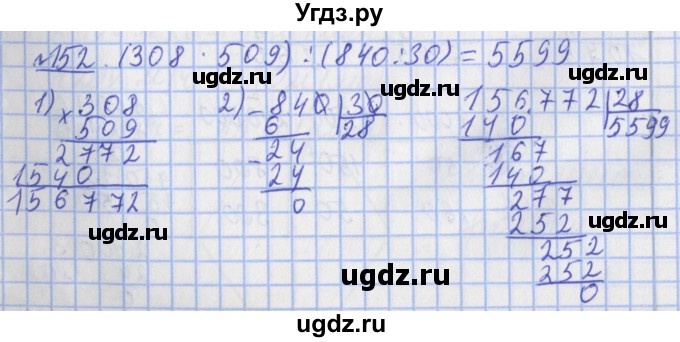 Угдз.ру
№152. (308 · 509) : (840:30) = 5599
1) × 308
509
2772
1540
156772
2) - 840 | 30
6 | 28
- 24
24
0
156772 | 28
140 | 5599
167
140
277
252
252
252
0
ugdz.ru
ugdz.ru
ugdz.ru
ugdz.ru
ugdz.ru
ugdz.ru
ugdz.ru